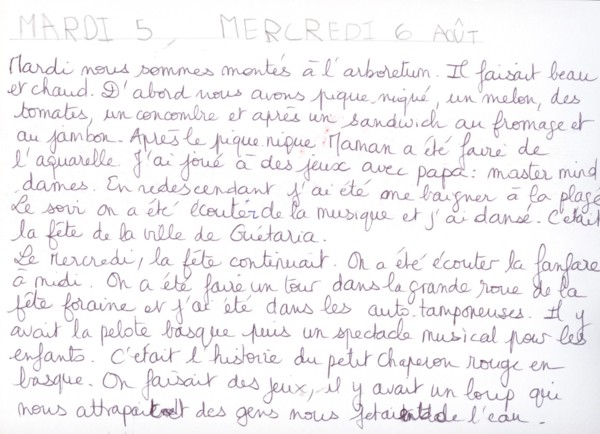 MARDI 5, MERCREDI 6 AOÛT
Mardi nous sommes montés à l'arboretum. Il faisait beau
et chaud. D'abord nous avons pique-niqué, un melon, des
tomates, un concombre et après un sandwich au fromage et
au jambon. Après le pique nique Maman a été faire de
l'aquarelle. J'ai joué à des jeux avec papa : master mind
dames. En redescendant j'ai été me baigner à la plage
Le soir on a été écouter de la musique et j'ai dansé. C'était
la fête de la ville de Guétaria.
Le Mercredi, la fête continuait. On a été écouter la fanfare
à midi. On a été faire un tour dans la grande roue de la
fête foraine et j'ai été dans les auto-tamponeuses. Il y
avait la pelote basque puis un spectacle musical pour les
enfants. C'était l'histoire du petit chaperon rouge en
basque. On faisait des jeux, il y avait un loup qui
nous attrapait et des gens nous jetaient de l'eau.